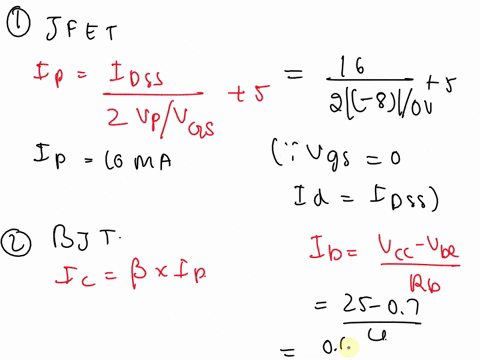 ① JFET
I_D = I_DSS / (2 V_P/V_GS) + 5 = 16 / (2|(-8)|/0V) + 5
I_D = 16 MA
(∵ Vgs = 0
Id = I_DSS)
② BJT.
I_C = β × I_B
I_b = (V_cc - V_be) / R_b
= 25 - 0.7
= 0.